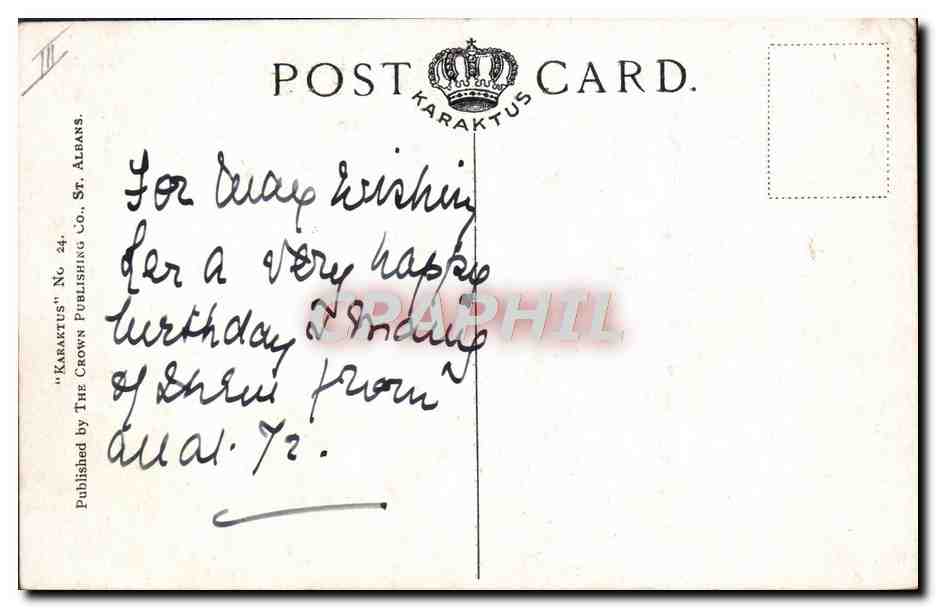 III
POST CARD.
KARAKTUS
"KARAKTUS" No 24.
Published by THE CROWN PUBLISHING Co., ST. ALBANS.
For May Wishing
her a very happy
birthday & many
of them from
at 72.
CPARAPHIL